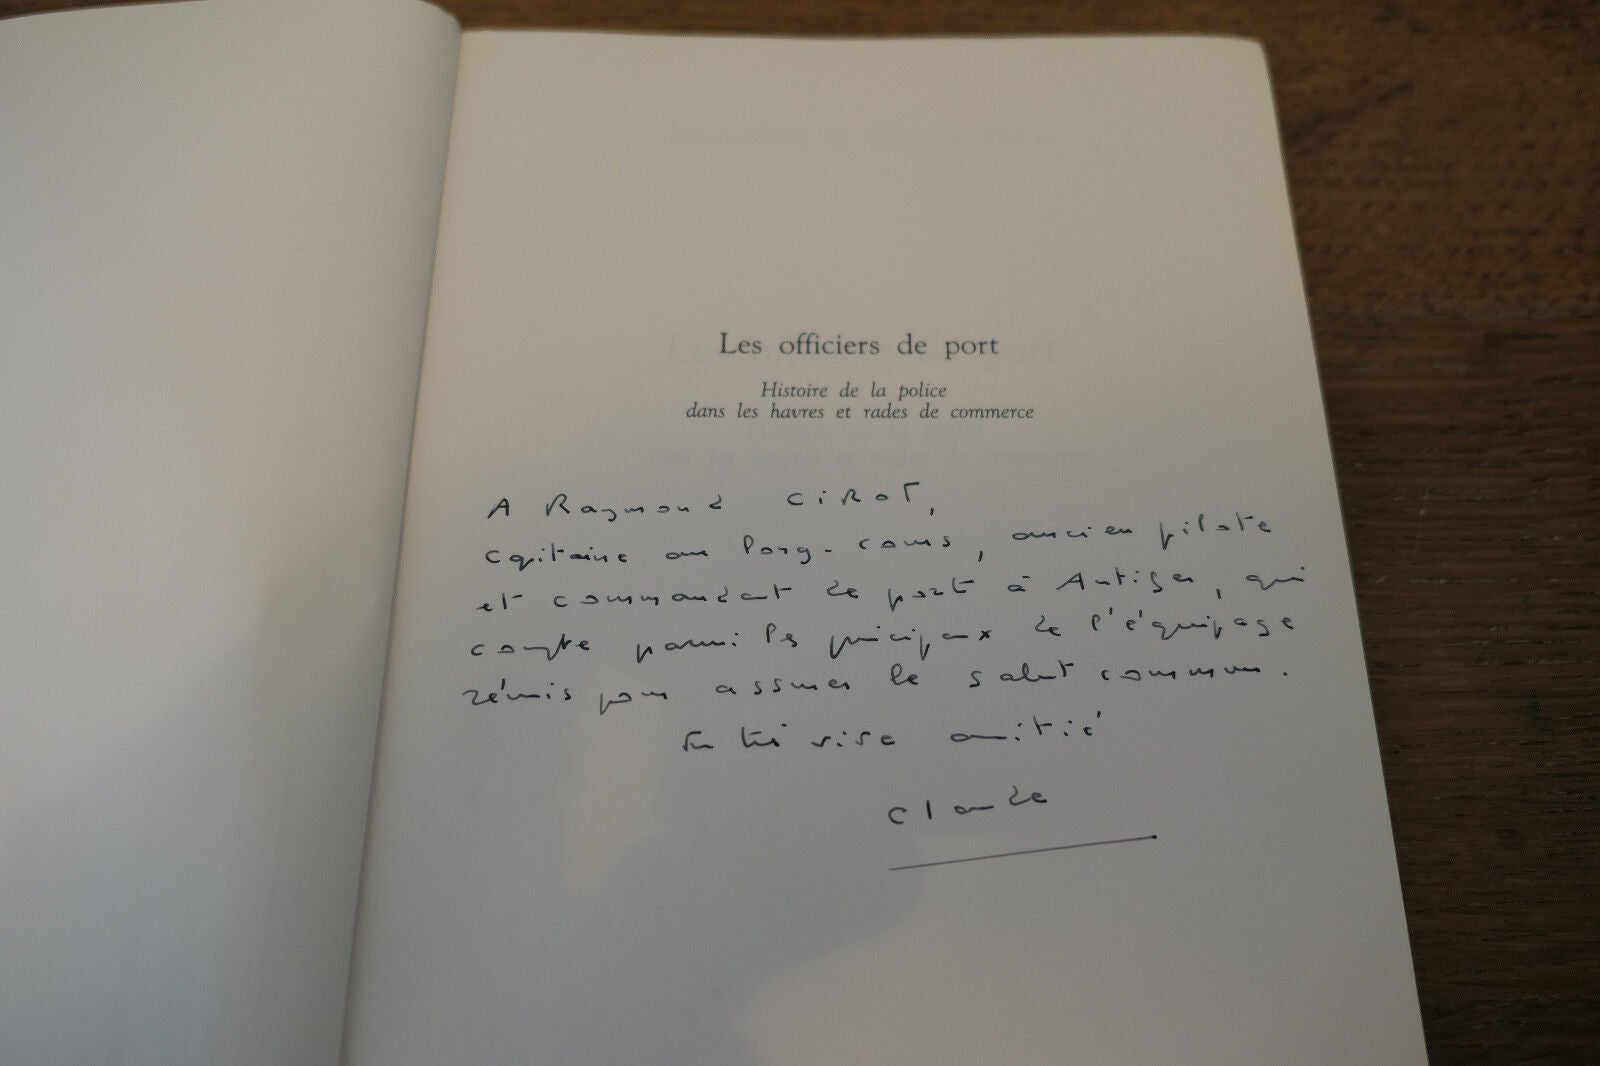 Les officiers de port
Histoire de la police
dans les havres et rades de commerce
A Raymond CiROT,
Capitaine au long-cours, ancien pilote
et commandant de port à Antifer, qui
compte parmi les principaux de l'équipage
réunis pour assurer le salut commun.
En très vive amitié
Claude